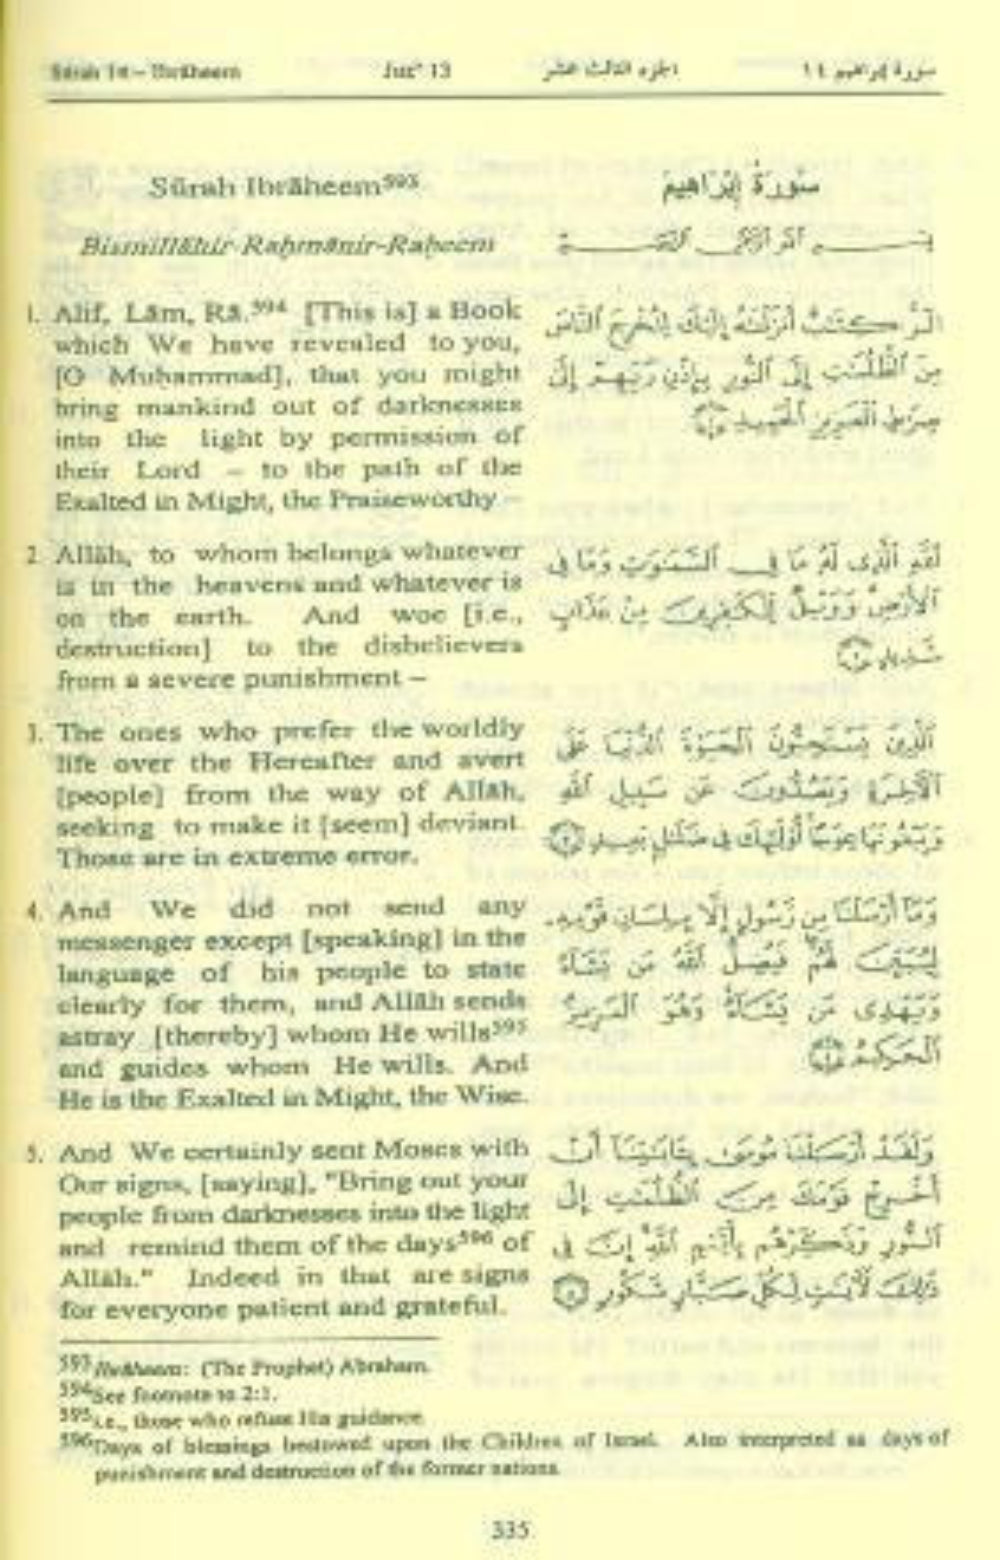 Sūrah 14 – Ibrāheem
Juz' 13
الجزء الثالث عشر
سورة إبراهيم ١٤
Sūrah Ibrāheem593
سُورَةُ إِبْرَاهِيمَ
Bismillāhir-Raḥmānir-Raḥeem
1. Alif, Lām, Rā.594 [This is] a Book
which We have revealed to you,
[O Muḥammad], that you might
bring mankind out of darknesses
into the light by permission of
their Lord – to the path of the
Exalted in Might, the Praiseworthy –
الٓر كِتَٰبٌ أَنزَلْنَٰهُ إِلَيْكَ لِتُخْرِجَ ٱلنَّاسَ
مِنَ ٱلظُّلُمَٰتِ إِلَى ٱلنُّورِ بِإِذْنِ رَبِّهِمْ إِلَىٰ
صِرَٰطِ ٱلْعَزِيزِ ٱلْحَمِيدِ ١
2. Allāh, to whom belongs whatever
is in the heavens and whatever is
on the earth. And woe [i.e.,
destruction] to the disbelievers
from a severe punishment –
ٱللَّهِ ٱلَّذِى لَهُۥ مَا فِى ٱلسَّمَٰوَٰتِ وَمَا فِى
ٱلْأَرْضِ وَوَيْلٌ لِّلْكَٰفِرِينَ مِنْ عَذَابٍ
شَدِيدٍ ٢
3. The ones who prefer the worldly
life over the Hereafter and avert
[people] from the way of Allāh,
seeking to make it [seem] deviant.
Those are in extreme error.
ٱلَّذِينَ يَسْتَحِبُّونَ ٱلْحَيَوٰةَ ٱلدُّنْيَا عَلَى
ٱلْأَخِرَةِ وَيَصُدُّونَ عَن سَبِيلِ ٱللَّهِ
وَيَبْغُونَهَا عِوَجًا أُو۟لَٰٓئِكَ فِى ضَلَٰلٍۭ بَعِيدٍ ٣
4. And We did not send any
messenger except [speaking] in the
language of his people to state
clearly for them, and Allāh sends
astray [thereby] whom He wills595
and guides whom He wills. And
He is the Exalted in Might, the Wise.
وَمَآ أَرْسَلْنَا مِن رَّسُولٍ إِلَّا بِلِسَانِ قَوْمِهِۦ
لِيُبَيِّنَ لَهُمْ فَيُضِلُّ ٱللَّهُ مَن يَشَآءُ
وَيَهْدِى مَن يَشَآءُ وَهُوَ ٱلْعَزِيزُ
ٱلْحَكِيمُ ٤
5. And We certainly sent Moses with
Our signs, [saying], "Bring out your
people from darknesses into the light
and remind them of the days596 of
Allāh." Indeed in that are signs
for everyone patient and grateful.
وَلَقَدْ أَرْسَلْنَا مُوسَىٰ بِـَٔايَٰتِنَآ أَنْ
أَخْرِجْ قَوْمَكَ مِنَ ٱلظُّلُمَٰتِ إِلَى
ٱلنُّورِ وَذَكِّرْهُم بِأَيَّىٰمِ ٱللَّهِ إِنَّ فِى
ذَٰلِكَ لَأَيَٰتٍ لِّكُلِّ صَبَّارٍ شَكُورٍ ٥
593 Ibrāheem: (The Prophet) Abraham.
594 See footnote to 2:1.
595 i.e., those who refuse His guidance.
596 Days of blessings bestowed upon the Children of Israel. Also interpreted as days of
punishment and destruction of the former nations.
335